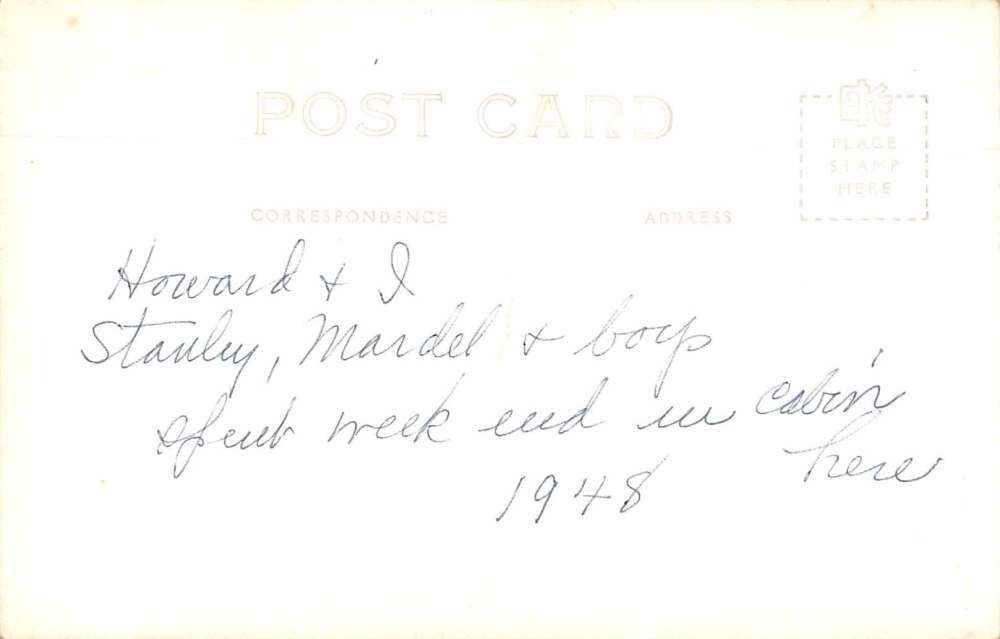 POST CARD
EKC
PLACE
STAMP
HERE
CORRESPONDENCE
ADDRESS
Howard & I
Stanley, Mardel & boys
spent week end in cabin
here
1948